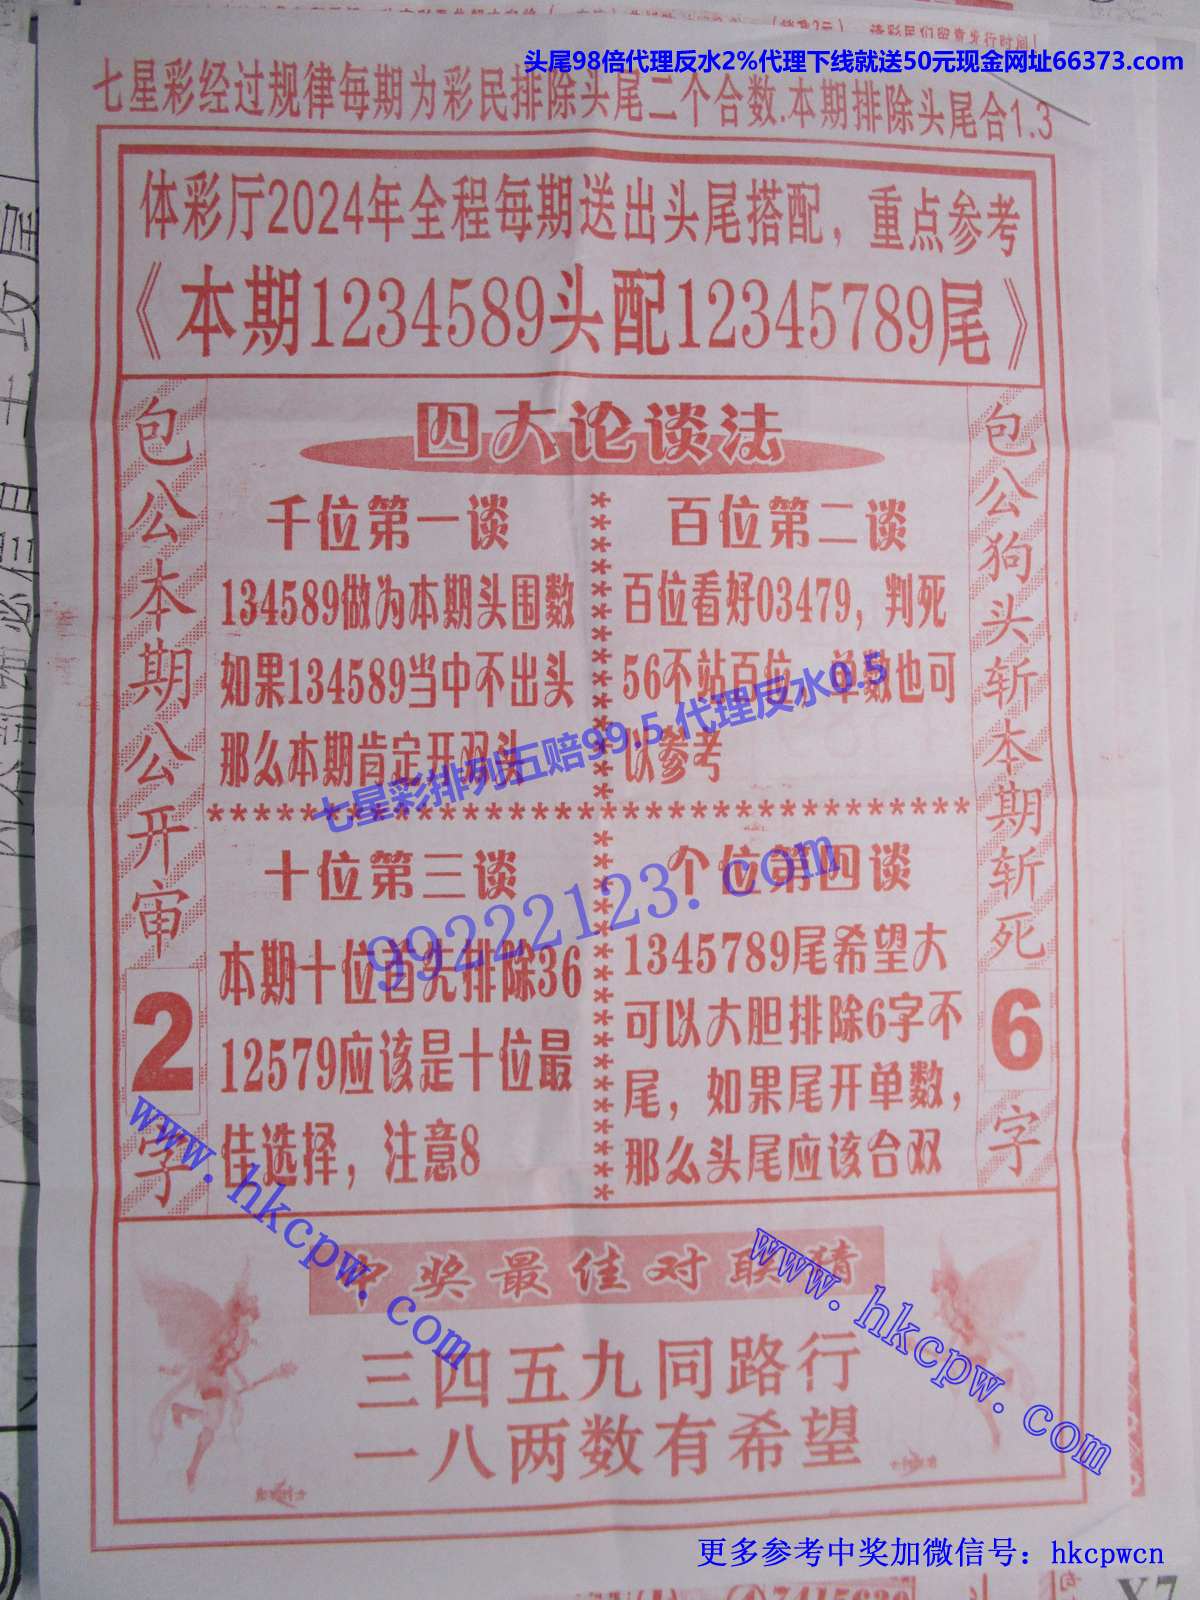 头尾98倍代理反水2%代理下线就送50元现金网址66373.com
七星彩经过规律每期为彩民排除头尾二个合数.本期排除头尾合1.3
体彩厅2024年全程每期送出头尾搭配，重点参考
《本期1234589头配12345789尾》
四大论谈法
包公本期公开审2字
千位第一谈
134589做为本期头围数
如果134589当中不出头
那么本期肯定开双头
百位第二谈
百位看好03479，判死
56不站百位，单数也可
以参考
包公狗头斩本期斩死6字
七星彩排列五赔99.5 代理反水0.5
99222123.com
十位第三谈
本期十位首先排除36
12579应该是十位最
佳选择，注意8
个位第四谈
1345789尾希望大
可以大胆排除6字不
尾，如果尾开单数，
那么头尾应该合双
www.hkcpw.com
www.hkcpw.com
中奖最佳对联猜
三四五九同路行
一八两数有希望
更多参考中奖加微信号：hkcpwcn